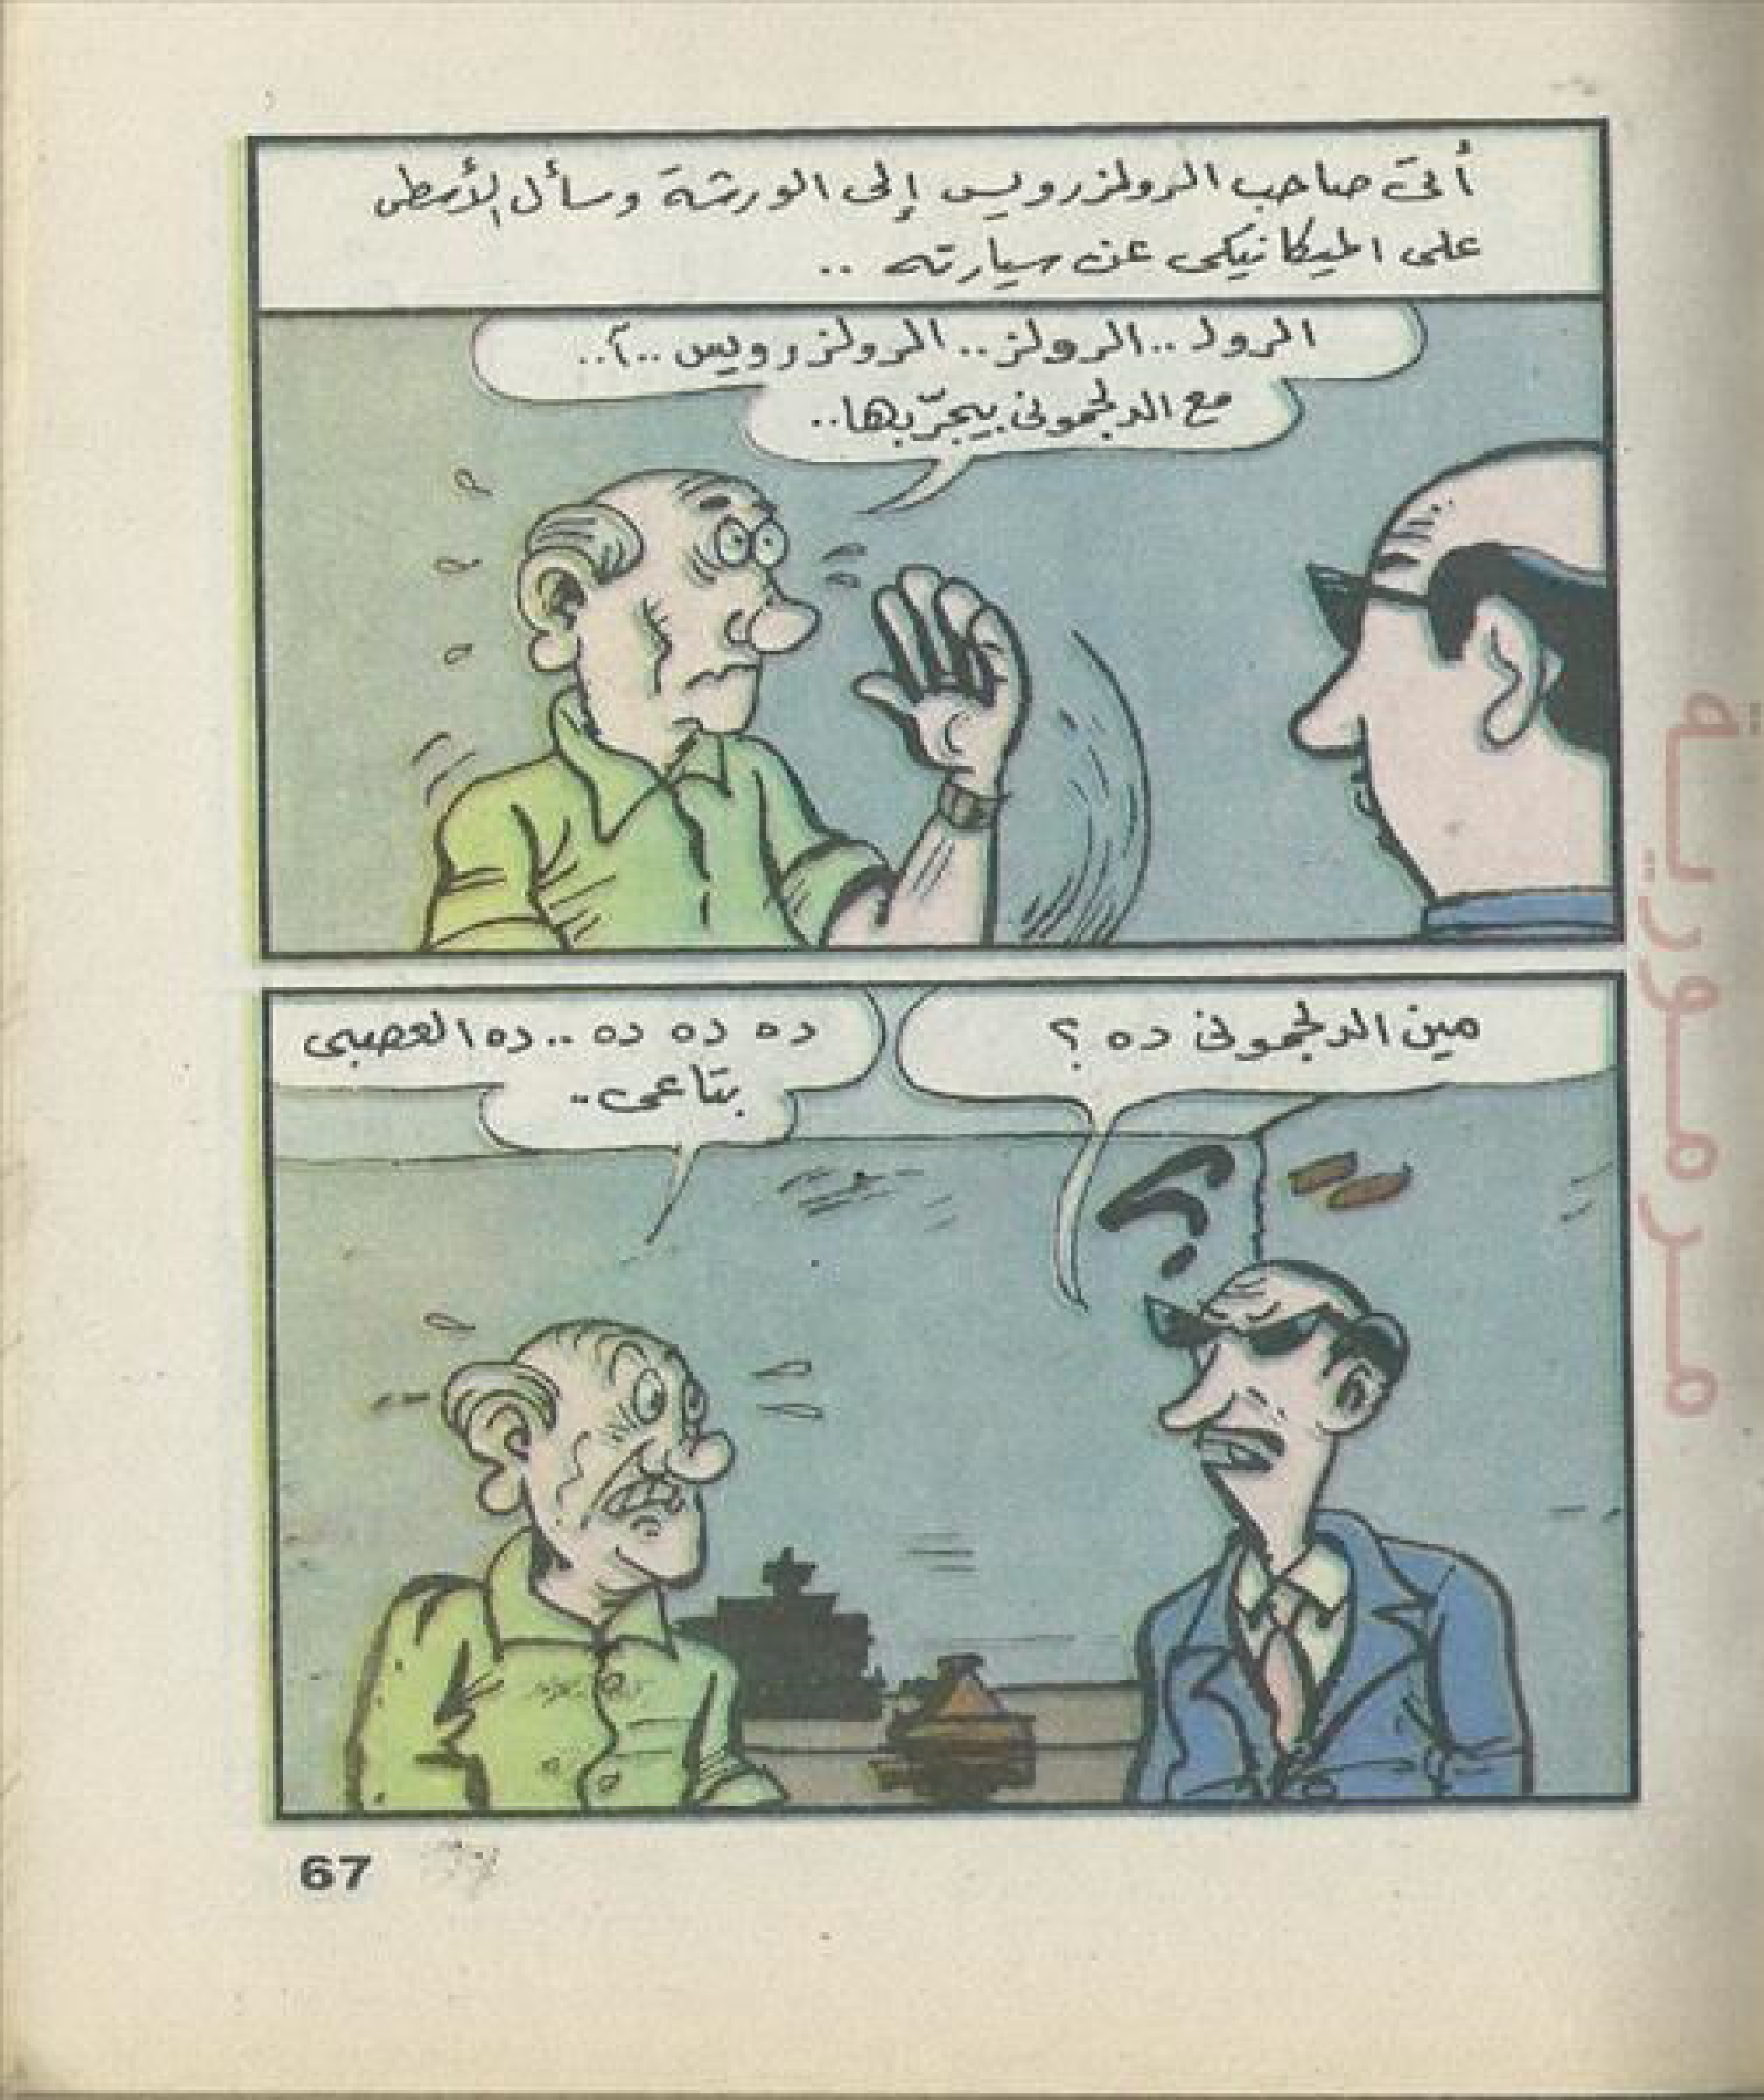 أتى صاحب الرولزرويس إلى الورشة وسأل الأسطى
على الميكانيكى عن سيارته ..
الرولـ .. الرولز .. الرولزرويس .. آ ..
مع الدلجمونى بيجرّبها ..
مين الدلجمونى ده ؟
ده ده ده .. ده العصبى
بتاعى ..
؟
67